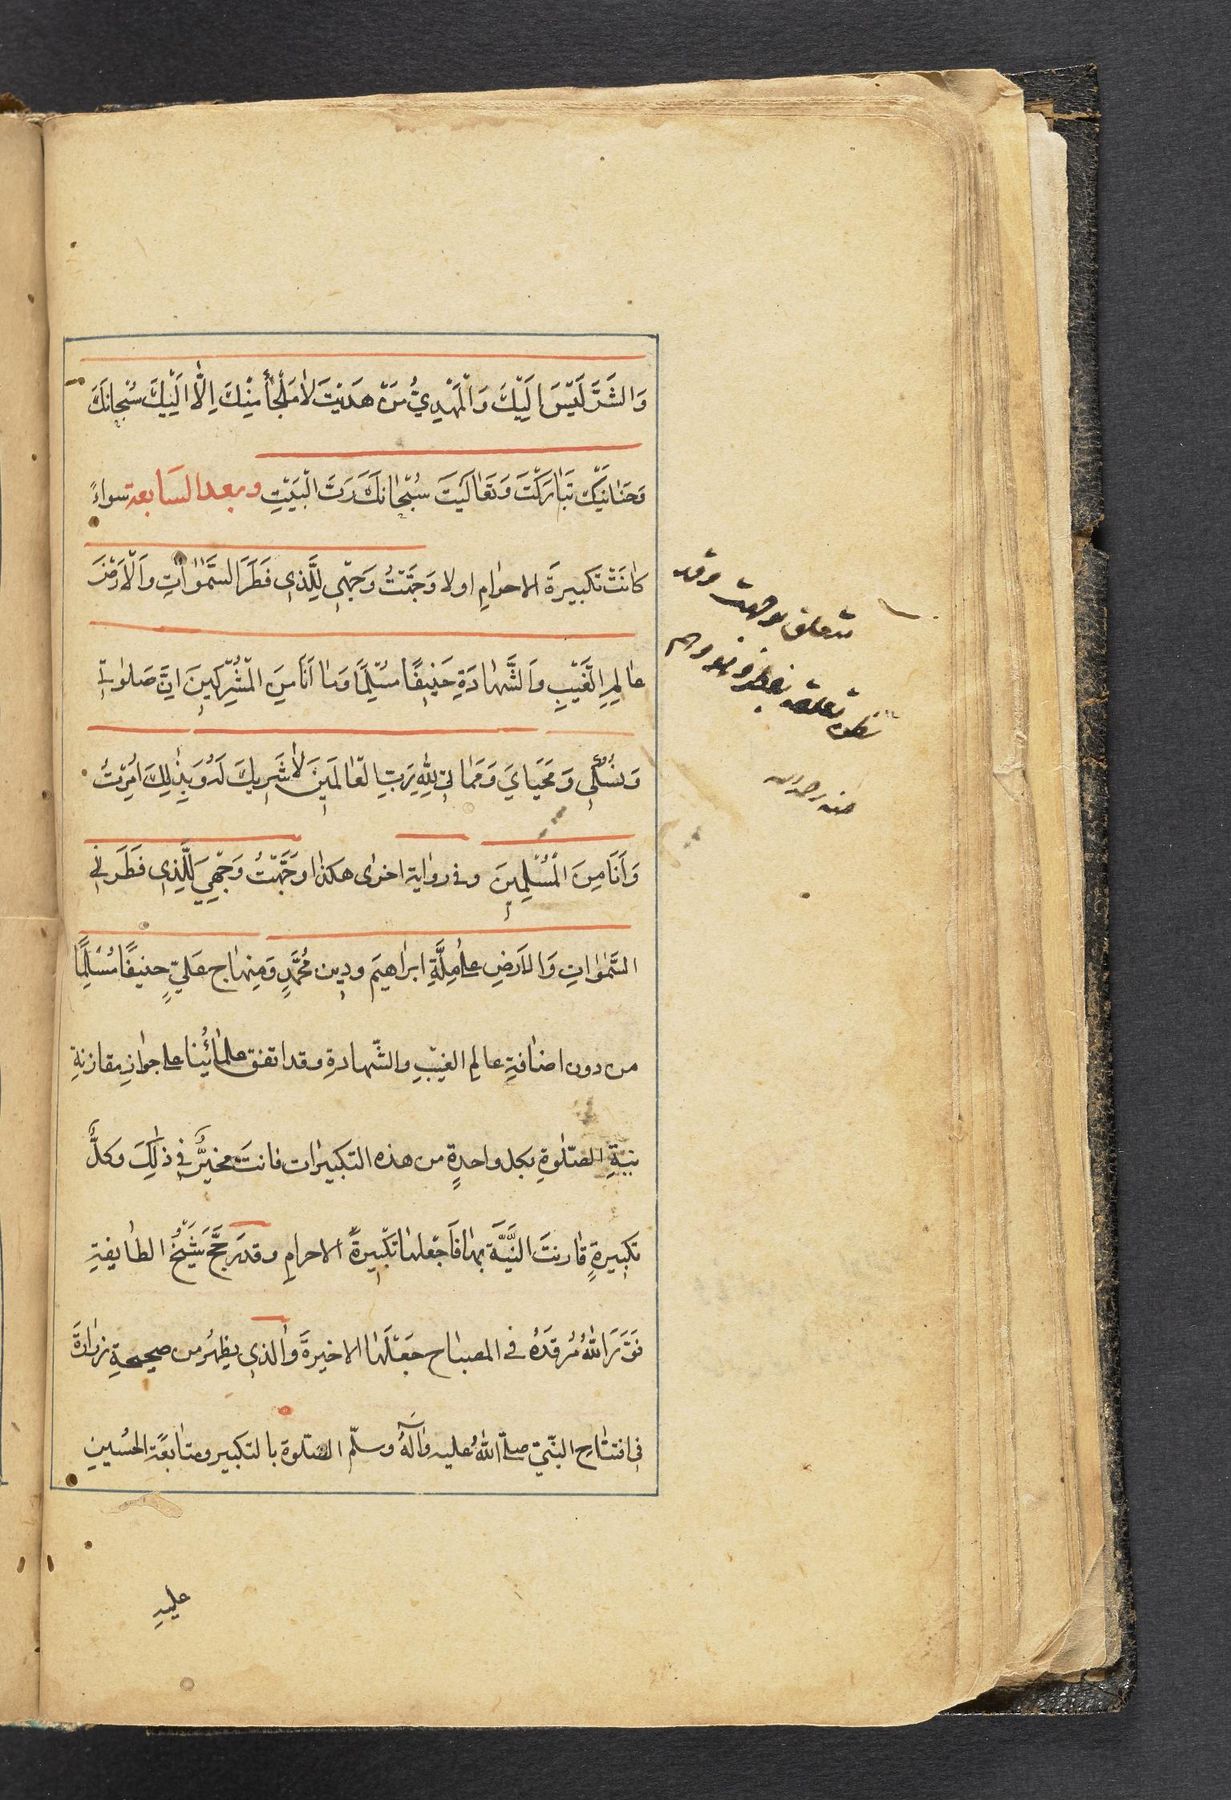 وَالشَرَّ لَيْسَ اِلَيْكَ وَالْمَهْدِيُّ مَنْ هَدَيْتَ لاٰ مَلْجَأَ مِنْكَ اِلّٰا اِلَيْكَ سُبْحانَكَ
وَحَنانَيْكَ تَبٰارَكْتَ وَتَعٰالَيْتَ سُبْحٰانَكَ رَبَّ الْبَيْتِ وبعد السَابعة سواءً
كٰانَتْ تكبيرةَ الاحرامِ اولا وَجَّهْتُ وَجْهِى لِلَّذِى فَطَرَ السَّمٰوٰاتِ وَالْاَرْضَ
عٰالِمِ الْغَيْبِ وَالشَّهٰادَةِ حَنِيفًا مُسْلِمًا وَمٰا اَنَا مِنَ الْمُشْرِكِينَ اِنَّ صَلوٰتِى
وَنُسُكِى وَمَحْيٰايَ وَمَمٰاتِى لِلّٰهِ رَبِّ الْعٰالَمِينَ لاٰ شَرِيكَ لَهُ وَبِذٰلِكَ اُمِرْتُ
وَاَنَا مِنَ الْمُسْلِمِينَ وفى روٰاية اخرٰى هكذا وَجَّهْتُ وَجْهِيَ لِلَّذِى فَطَرَنِى
السَّمٰوٰاتِ وَالْاَرْضِ عَلىٰ مِلَّةِ ابرٰاهيمَ ودين مُحَمَّدٍ وَمِنهٰاج عَلِيٍّ حنيفًا مُسْلِمًا
من دون اضٰافةِ عالمِ الغيْبِ والشّهادةِ وقد اتفق علمٰائُنا على جوازِ مقارنةِ
نيّةِ الصّلوٰةِ بكل واحدةٍ من هذه التكبيرات فانتَ مخيرٌ فى ذٰلِكَ وكلُّ
تكبيرةٍ قٰارنتَ النِّيَّةَ بهٰا فَاجْعَلهٰا تكْبيرةَ الاحرامِ وقد رجَّحَ شَيْخُ الطٰايفةِ
نَوَّرَ اللهُ مُرقَدَهُ فى المصبٰاح جَعْلَهٰا الاخيرةَ وَالذى يظهرُ من صحيحةِ زرٰارَةَ
فى افتتٰاح النبّيّ صلّى اللهُ عليه وٰالهِ وسلّم الصّلوة بالتكبير ومتٰابعَةِ الحُسَينِ
عليهِ
متعلق بوجهت وقد
منه رحمه الله